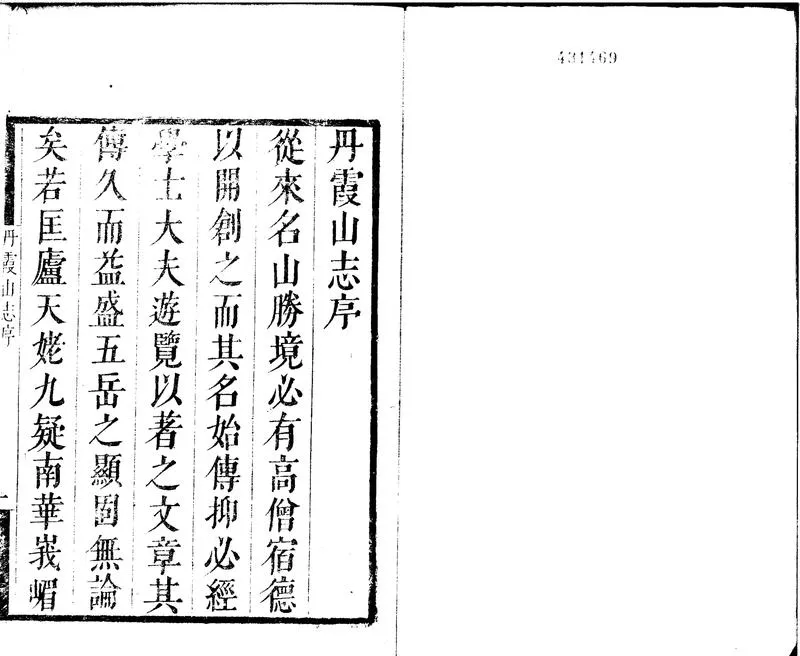 431469
丹霞山志序
從來名山勝境必有高僧宿德
以開創之而其名始傳抑必經
學士大夫遊覽以著之文章其
傳久而益盛五岳之顯固無論
矣若匡廬天姥九疑南華峩嵋
丹霞山志序
一